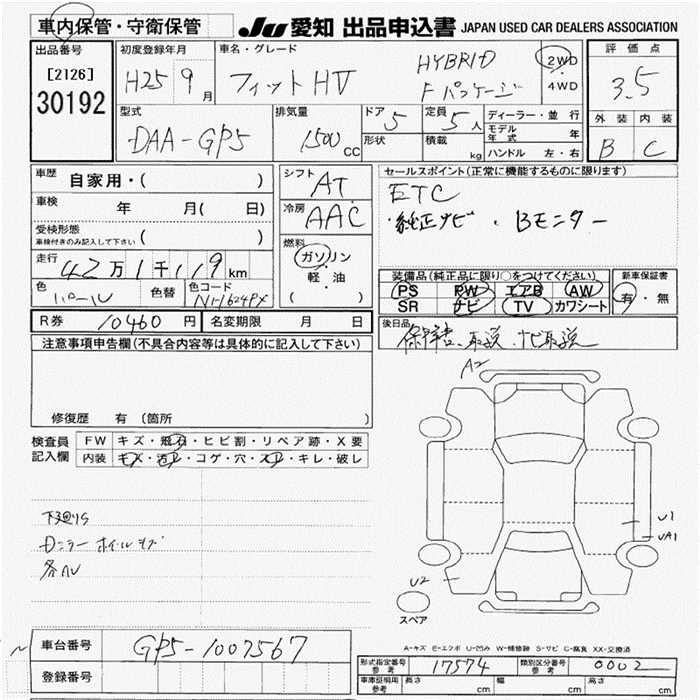 車内保管・守衛保管
JU 愛知 出品申込書 JAPAN USED CAR DEALERS ASSOCIATION
出品番号 [2126] 30192
初度登録年月 H25 9月
車名・グレード フィットHV HYBRID Fパッケージ
2WD ・ 4WD
評価点 3.5
外装 B 内装 C
型式 DAA-GP5
排気量 1500 CC
ドア 5 形状
定員 5人 積載 kg
ディーラー・並行
モデル年式 年
ハンドル 左・右
車歴 自家用・( )
車検 年 月( 日)
受検形態 車検付きのみ記入して下さい ( )
走行 42万1千119km
色 パール 色替 色コード NH624PX
シフト AT
冷房 AAC
燃料 ガソリン 軽・油 ( )
セールスポイント(正常に機能するものに限ります)
ETC
・純正ナビ・Bモニター
装備品(純正品に限り○をつけてください)
PS PW エアB AW
SR ナビ TV カワシート
新車保証書 有・無
R券 10460円 名変期限 月 日
後日品 保障書、取説、ナビ取説
注意事項申告欄(不具合内容等は具体的に記入して下さい)
修復歴 有 (箇所
A2
検査員記入欄 FW キズ・飛石・ヒビ割・リペア跡・X要
内装 キズ・汚れ・コゲ・穴・スレ・キレ・破レ
下廻りS
Dミラー ホイールキズ
各AU
U1
UA1
U2
スペア
車台番号 GP5-1007567
登録番号
A-キズ E-エクボ U-凹み W-補修跡 S-サビ C-腐食 XX-交換済
形式指定番号 参考 17574 類別区分番号 参考 0002
車庫証明用 参考 長さ cm 幅 cm 高さ cm